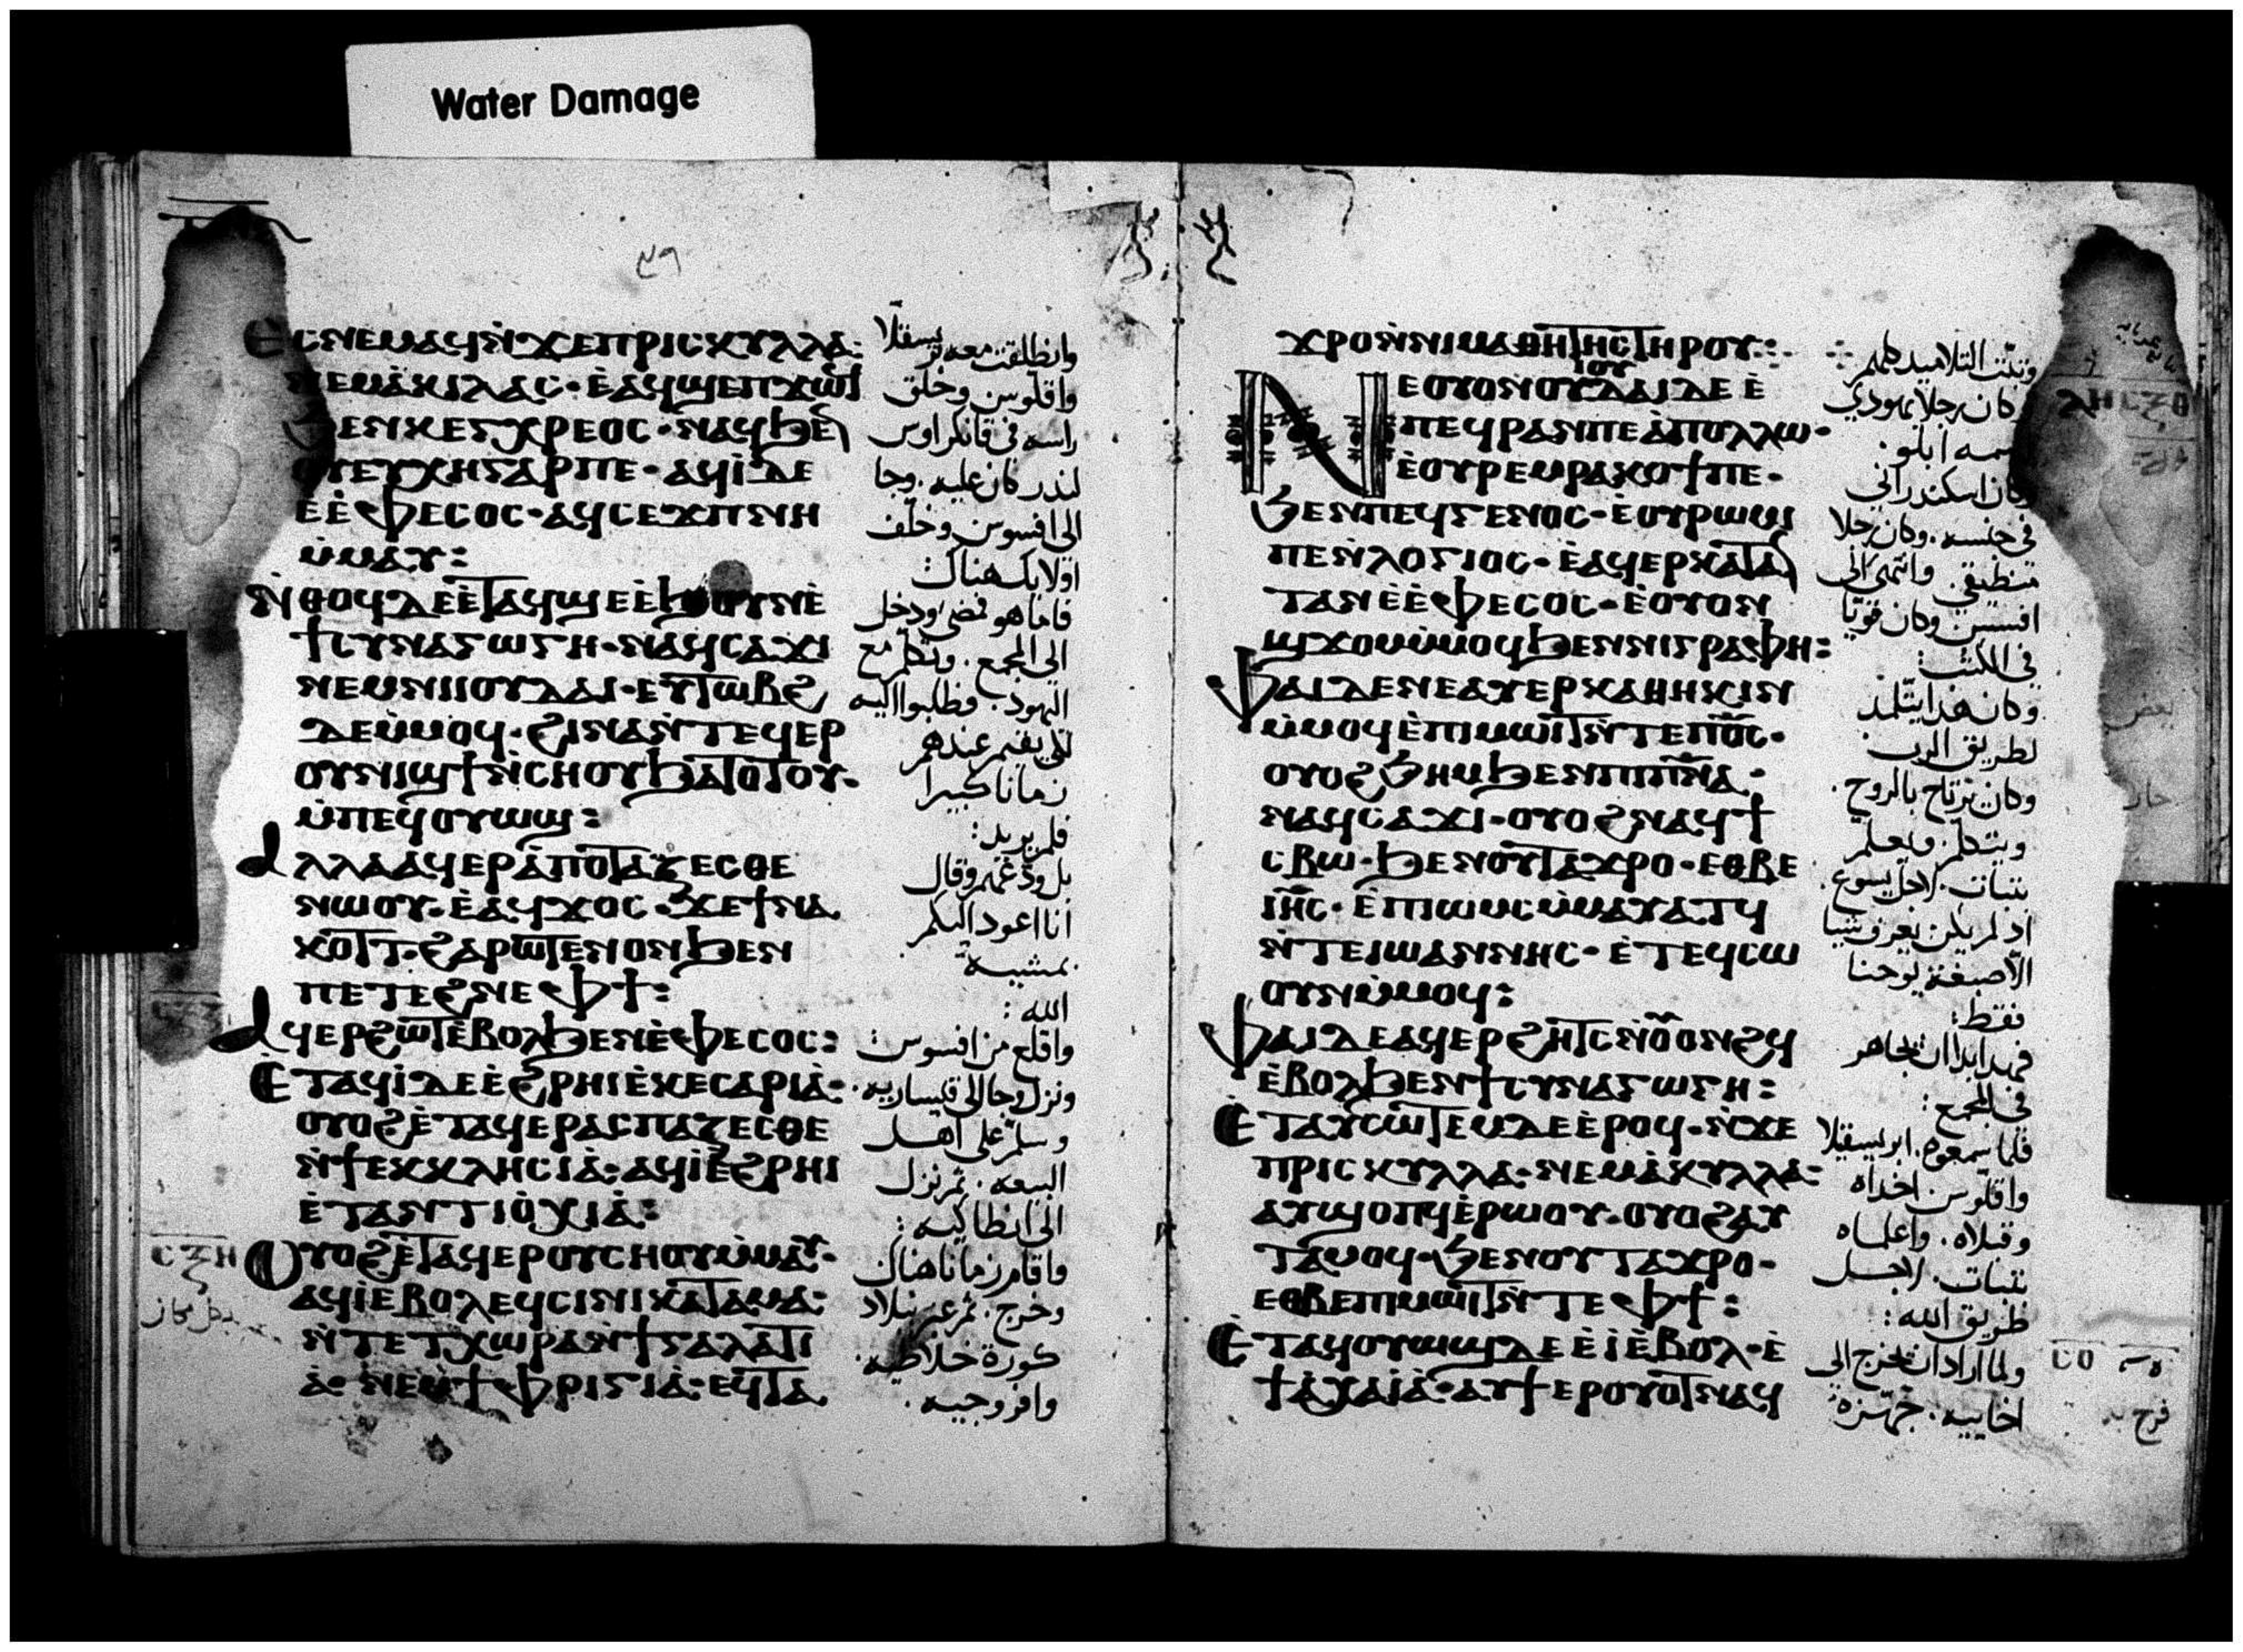 Water Damage
٣٩
ⲉⲥⲛⲉⲙⲁϥⲛ̀ϫⲉⲡⲣⲓⲥⲕⲩⲗⲗⲁ:
ⲛⲉⲙⲁ̀ⲕⲓⲗⲁⲥ· ⲉ̀ⲁϥϣⲉⲡϫⲱϥ
ϧⲉⲛⲕⲉⲛⲭⲣⲉⲟⲥ· ⲛⲁϥϧⲉⲛ
ⲟⲩⲉⲩⲭⲏⲅⲁⲣⲡⲉ· ⲁϥⲓ̀ⲇⲉ
ⲉⲉ̀ⲫⲉⲥⲟⲥ· ⲁϥⲥⲉϫⲡⲛⲏ
ⲙ̀ⲙⲁⲩ:
ⲛ̀ⲑⲟϥⲇⲉⲉ̀ⲧⲁϥϣⲉⲉ̀ϧⲟⲩⲛⲉ̀
ϯⲥⲩⲛⲁⲅⲱⲅⲏ· ⲛⲁϥⲥⲁϫⲓ
ⲛⲉⲙⲛⲓⲓⲟⲩⲇⲁⲓ· ⲉⲩⲧⲱⲃϩ
ⲇⲉⲙ̀ⲙⲟϥ· ϩⲓⲛⲁⲛ̀ⲧⲉϥⲉⲣ
ⲟⲩⲛⲓϣϯⲛ̀ⲥⲏⲟⲩϧⲁⲧⲟⲧⲟⲩ·
ⲙ̀ⲡⲉϥⲟⲩⲱϣ:
ⲁⲗⲗⲁⲁϥⲉⲣⲁ̀ⲡⲟⲧⲁⲍⲉⲥⲑⲉ
ⲛⲱⲟⲩ· ⲉ̀ⲁϥϫⲟⲥ· ϫⲉϯⲛⲁ
ⲕⲟⲧⲧ· ϩⲁⲣⲱⲧⲉⲛⲟⲛϧⲉⲛ
ⲡⲉⲧⲉϩⲛⲉⲫϯ:
ⲁϥⲉⲣϩⲱⲧⲉ̀ⲃⲟⲗϧⲉⲛⲉ̀ⲫⲉⲥⲟⲥ:
ⲉ̀ⲧⲁϥⲓ̀ⲇⲉⲉ̀ϩⲣⲏⲓⲉ̀ⲕⲉⲥⲁⲣⲓⲁ̀·
ⲟⲩⲟϩⲉ̀ⲧⲁϥⲉⲣⲁⲥⲡⲁⲍⲉⲥⲑⲉ
ⲛ̀ϯⲉⲕⲕⲗⲏⲥⲓⲁ̀· ⲁϥⲓ̀ⲉ̀ϩⲣⲏⲓ
ⲉ̀ⲧⲁⲛⲧⲓⲟ̀ⲭⲓⲁ̀:
ⲟⲩⲟϩⲉ̀ⲧⲁϥⲉⲣⲟⲩⲥⲏⲟⲩⲙ̀ⲙⲁⲩ·
ⲁϥⲓ̀ⲉⲃⲟⲗⲉϥⲥⲓⲛⲓⲕⲁⲧⲁⲙⲁ:
ⲛ̀ⲧⲉⲧⲭⲱⲣⲁⲛ̀ϯⲅⲁⲗⲁⲧⲓ
ⲁ̀· ⲛⲉⲙϯⲫⲣⲓⲅⲓⲁ̀· ⲉϥⲧⲁ
وانطلقت معه بريسقلا
واقلوس وحلق
راسه في قانكراوس
لنذر كان عليه. وجا
الى افسوس وخلف
اولايك هناك
فاما هو فمضى ودخل
الى المجمع. وتكلم مع
اليهود. فطلبوا اليه
ان يقيم عندهم
زمانا كبيرا
فلم يريد:
بل ودعهم وقال
انا اعود اليكم
بمشيه
الله:
واقلع من افسوس:
ونزل وجا الى قيساريه.
وسلم على اهل
البيعه. ثم نزل
الى انطاكيه:
واقام زمانا هناك
وخرج. ثم عبر ببلاد
كورة غلاطيه.
وافروجيه.
ⲥⲝⲏ
ⲭⲣⲟⲛ̀ⲛⲓⲙⲁⲑⲏⲧⲏⲥⲧⲏⲣⲟⲩ:
ⲛⲉⲟⲩⲟⲛⲟⲩⲓⲟⲩⲇⲁⲓⲇⲉ ⲉ̀
ⲡⲉϥⲣⲁⲛⲡⲉⲁ̀ⲡⲟⲗⲗⲱ·
ⲉ̀ⲟⲩⲣⲉⲙⲣⲁⲕⲟϯⲡⲉ·
ϧⲉⲛⲡⲉϥⲅⲉⲛⲟⲥ· ⲉ̀ⲟⲩⲣⲱⲙⲓ
ⲡⲉⲛ̀ⲗⲟⲅⲓⲟⲥ· ⲉ̀ⲁϥⲉⲣⲕⲁⲧⲁⲛ
ⲧⲁⲛⲉⲉ̀ⲫⲉⲥⲟⲥ· ⲉ̀ⲟⲩⲟⲛ
ϣϫⲟⲙⲙ̀ⲙⲟϥϧⲉⲛⲛⲓⲅⲣⲁⲫⲏ:
ⲫⲁⲓⲇⲉⲛⲉⲁⲩⲉⲣⲕⲁⲑⲏⲕⲓⲛ
ⲙ̀ⲙⲟϥⲉ̀ⲡⲓⲙⲱⲓⲧⲛ̀ⲧⲉⲡⲟ̅ⲥ̅·
ⲟⲩⲟϩϧⲏⲙϧⲉⲛⲡⲡⲛ̅ⲁ̅·
ⲛⲁϥⲥⲁϫⲓ· ⲟⲩⲟϩⲛⲁϥϯ
ⲥⲃⲱ· ϧⲉⲛⲟⲩⲧⲁϫⲣⲟ· ⲉⲑⲃⲉ
ⲓⲏ̅ⲥ̅· ⲉ̀ⲡⲓⲱⲙⲥⲙ̀ⲙⲁⲩⲁⲧϥ
ⲛ̀ⲧⲉⲓⲱⲁⲛⲛⲏⲥ· ⲉ̀ⲧⲉϥⲥⲱ
ⲟⲩⲛⲙ̀ⲙⲟϥ:
ⲫⲁⲓⲇⲉⲁϥⲉⲣϩⲏⲧⲥⲛ̀ⲟ̅ⲟⲛϩϥ
ⲉ̀ⲃⲟⲗϧⲉⲛϯⲥⲩⲛⲁⲅⲱⲅⲏ:
ⲉ̀ⲧⲁⲩⲥⲱⲧⲉⲙⲇⲉⲉ̀ⲣⲟϥ· ⲛ̀ϫⲉ
ⲡⲣⲓⲥⲕⲩⲗⲗⲁ· ⲛⲉⲙⲁ̀ⲕⲩⲗⲗⲁ·
ⲁⲩϣⲟⲡϥⲉ̀ⲣⲱⲟⲩ· ⲟⲩⲟϩⲁⲩ
ⲧⲁⲙⲟϥ· ϧⲉⲛⲟⲩⲧⲁϫⲣⲟ·
ⲉⲑⲃⲉⲡⲓⲙⲱⲓⲧⲛ̀ⲧⲉⲫϯ:
ⲉ̀ⲧⲁϥⲟⲩⲱϣⲇⲉⲉ̀ⲓ̀ⲉ̀ⲃⲟⲗ· ⲉ̀
ϯⲁ̀ⲭⲁⲓ̀ⲁ̀· ⲁⲩϯⲉⲣⲟⲩⲟⲧⲛⲁϥ
وتبت التلاميد كلهم
كان رجلا يهودي
سمه ابلو.
وكان اسكندراني
في جنسه. وكان رجلا
منطيقي. وانتهى الى
افسس وكان قويا
في الكتب:
وكان هذا يتلمذ
لطريق الرب
وكان يرتاح بالروح.
ويتكلم. ويعلم
بتبات. لاجل يسوع.
اذ لم يكن يعرف شيا
الا صبغة يوحنا
فقط:
فهذا ابدا ان يجاهر
في المجمع:
فلما سمعوه. ابريسقلا
واقلوس اخذاه
وقبلاه. واعلماه
بتبات. لاجل
طريق الله:
ولما اراد ان يخرج الى
اخاييه. جهزه
ⲗⲏ ⲥⲝⲑ
ⲥⲟ